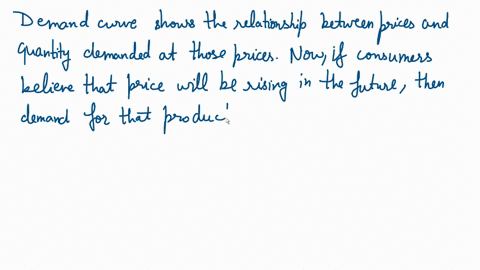 Demand curve shows the relationship between prices and
quantity demanded at those prices. Now, if consumers
believe that price will be rising in the future, then
demand for that produc'